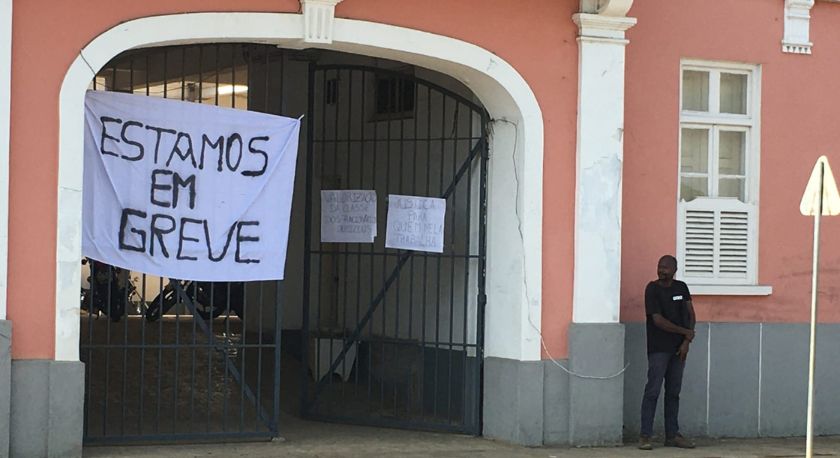 ESTAMOS
EM
GREVE
VALORIZAÇÃO
DA CLASSE
DOS FUNCIONÁRIOS
JUSTIÇA
PARA
QUEM NELA
TRABALHA